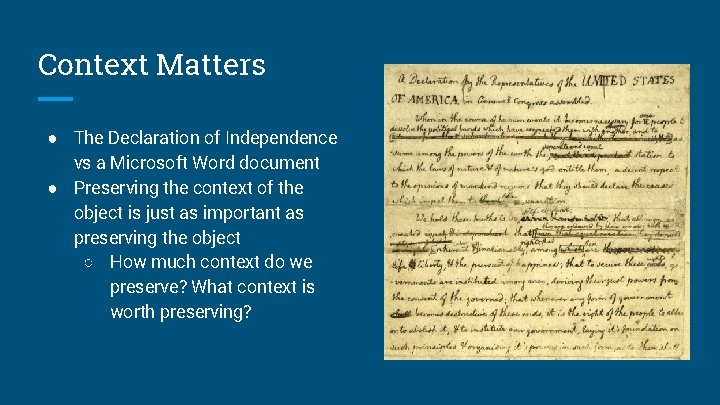 Context Matters
● The Declaration of Independence
vs a Microsoft Word document
● Preserving the context of the
object is just as important as
preserving the object
○ How much context do we
preserve? What context is
worth preserving?
a Declaration by the Representatives of the UNITED STATES
OF AMERICA, in General Congress assembled.
When in the course of human events it becomes necessary for a people to
one
dissolve the political bands which have connected them with another, and to
as
separate and equal
sume among the powers of the earth the station to
which the laws of nature & of nature's god entitle them, a decent respect
to the opinions of mankind requires that they should declare the causes
which impel them to the separation.
self-evident
We hold these truths to be that all men are
created equal
rights; that
life, liberty, & the pursuit of happiness; that to secure these rights, go
vernments are instituted among men, deriving their just powers from
the consent of the governed; that whenever any form of government
becomes destructive of these ends, it is the right of the people to alter
or to abolish it, & to institute new government, laying it's foundation on
such principles & organising it's powers in such form, as to them shall